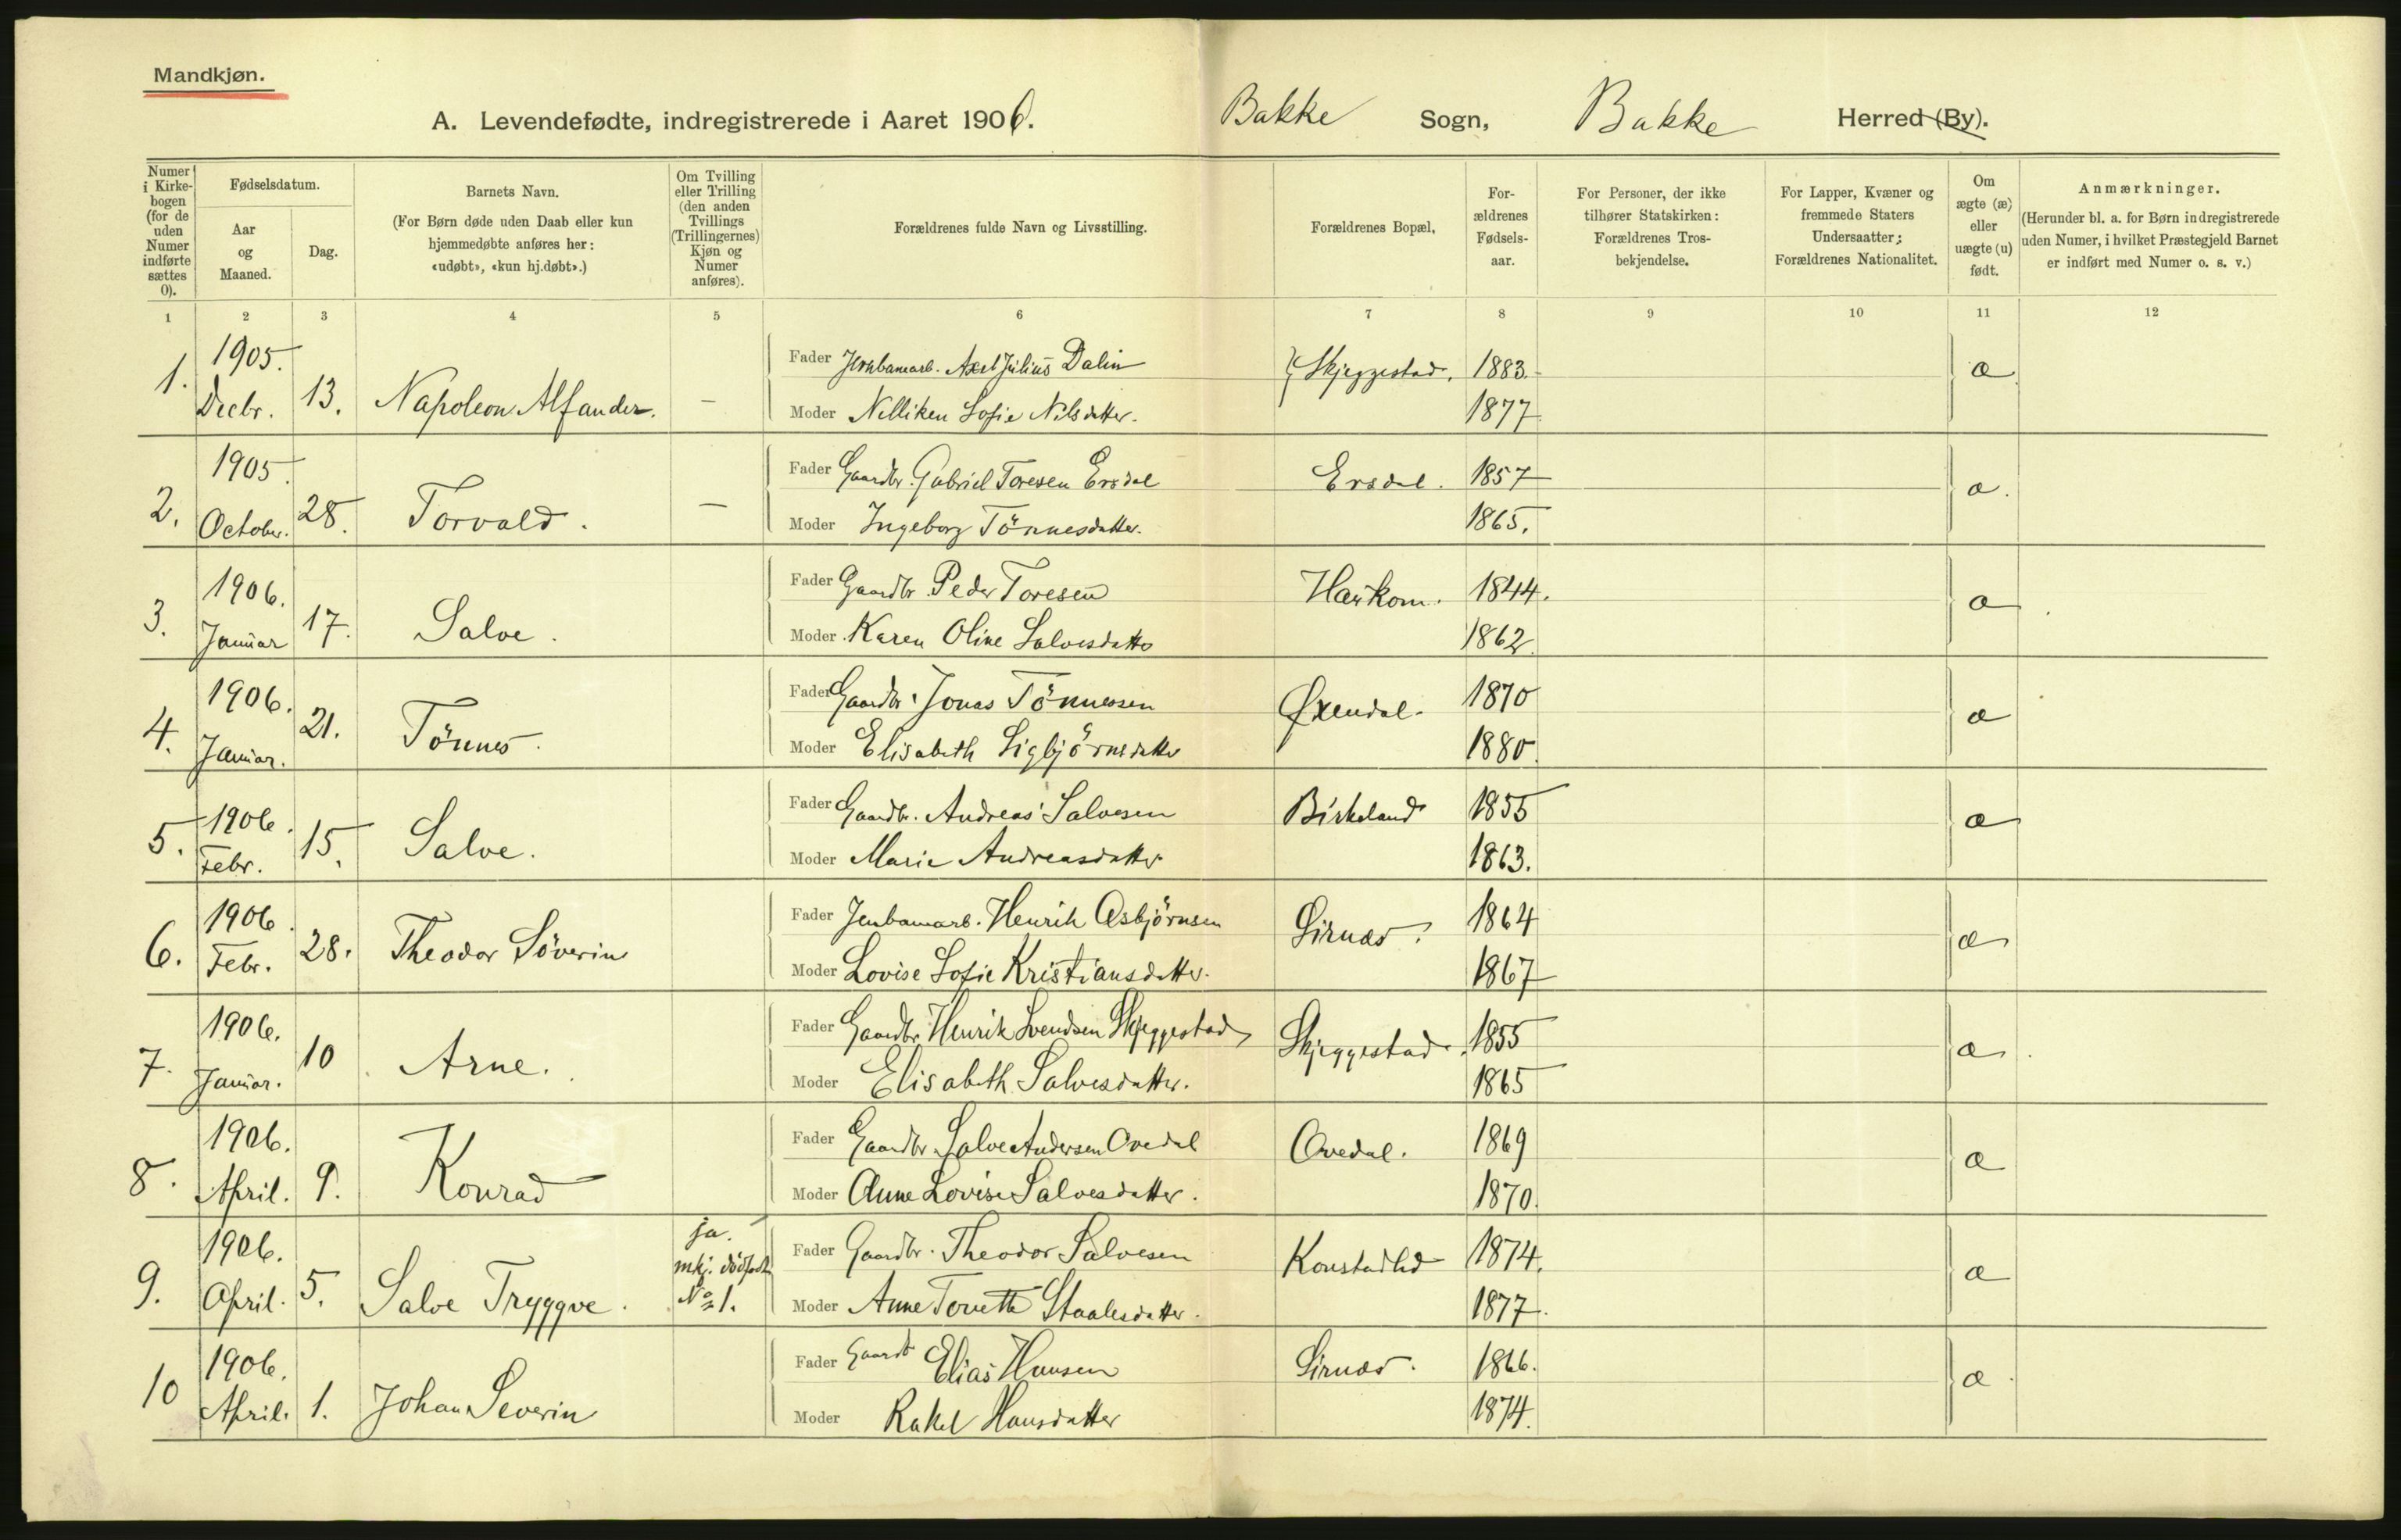 Mandkjøn.
A. Levendefødte, indregistrerede i Aaret 1906. Bakke Sogn, Bakke Herred (By).
Numer i Kirkebogen (for de uden Numer indførte sættes 0).
Fødselsdatum.
Aar og Maaned.
Dag.
Barnets Navn.
(For Børn døde uden Daab eller kun hjemmedøbte anføres her: «udøbt», «kun hj.døbt».)
Om Tvilling eller Trilling (den anden Tvillings (Trillingernes) Kjøn og Numer anføres).
Forældrenes fulde Navn og Livsstilling.
Forældrenes Bopæl,
Forældrenes Fødselsaar.
For Personer, der ikke tilhører Statskirken: Forældrenes Trosbekjendelse.
For Lapper, Kvæner og fremmede Staters Undersaatter; Forældrenes Nationalitet.
Om ægte (æ) eller uægte (u) født.
Anmærkninger.
(Herunder bl. a. for Børn indregistrerede uden Numer, i hvilket Præstegjeld Barnet er indført med Numer o. s. v.)
1 2 3 4 5 6 7 8 9 10 11 12
1. 1905. Decbr. 13. Napoleon Alfander. —
Fader Jernbanearb. Axel Julius Dalin Skjeggestad. 1883. æ
Moder Nelliken Sofie Nilsdatter. 1877
2. 1905. October. 28. Torvald. —
Fader Gaardbr. Gabriel Toresen Ersdal Ersdal. 1857 æ.
Moder Ingeborg Tönnesdatter. 1865.
3. 1906. Januar 17. Salve.
Fader Gaardbr. Peder Toresen Haukom. 1844. æ
Moder Karen Oline Salvesdatter 1862.
4. 1906. Januar. 21. Tönnes.
Fader Gaardbr. Jonas Tönnessen Øxendal. 1870 æ
Moder Elisabeth Sigbjörnsdatter 1880.
5. 1906. Febr. 15. Salve.
Fader Gaardbr. Andreas Salvesen Birkeland 1855 æ
Moder Marie Andreasdatter 1863.
6. 1906. Febr. 28. Theodor Söverin
Fader Jernbanearb. Henrik Asbjörnsen Sirnæs. 1864 æ
Moder Lovise Sofie Kristiansdatter. 1867
7. 1906. Januar. 10 Arne.
Fader Gaardbr. Henrik Svendsen Skjeggestad Skjeggestad. 1855 æ
Moder Elisabeth Salvesdatter. 1865
8. 1906. April. 9. Konrad
Fader Gaardbr. Salve Andersen Ovedal Ovedal. 1869 æ
Moder Anne Lovise Salvesdatter. 1870.
9. 1906. April. 5. Salve Tryggve. ja. mkj. dödfødt No 1.
Fader Gaardbr. Theodor Salvesen Konstadlid 1874. æ
Moder Anne Torette Staalesdatter. 1877.
10 1906. April. 1. Johan Severin
Fader Gaardb Elias Hansen Sirnæs. 1866. æ
Moder Rakel Hansdatter 1874.